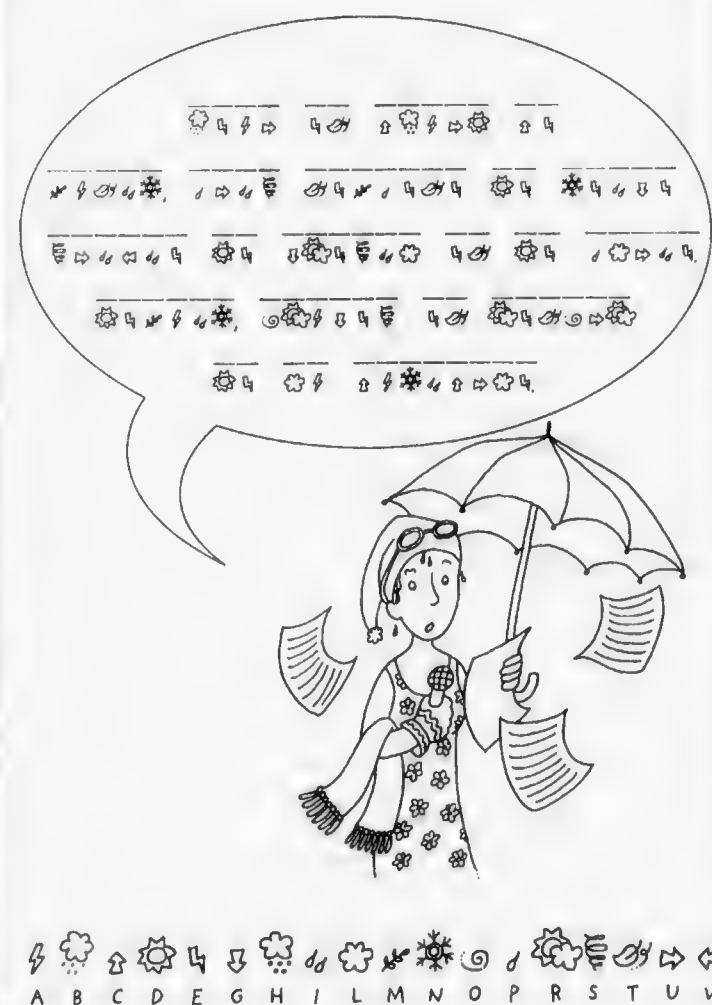 A B C D E G H I L M N O P R S T U V